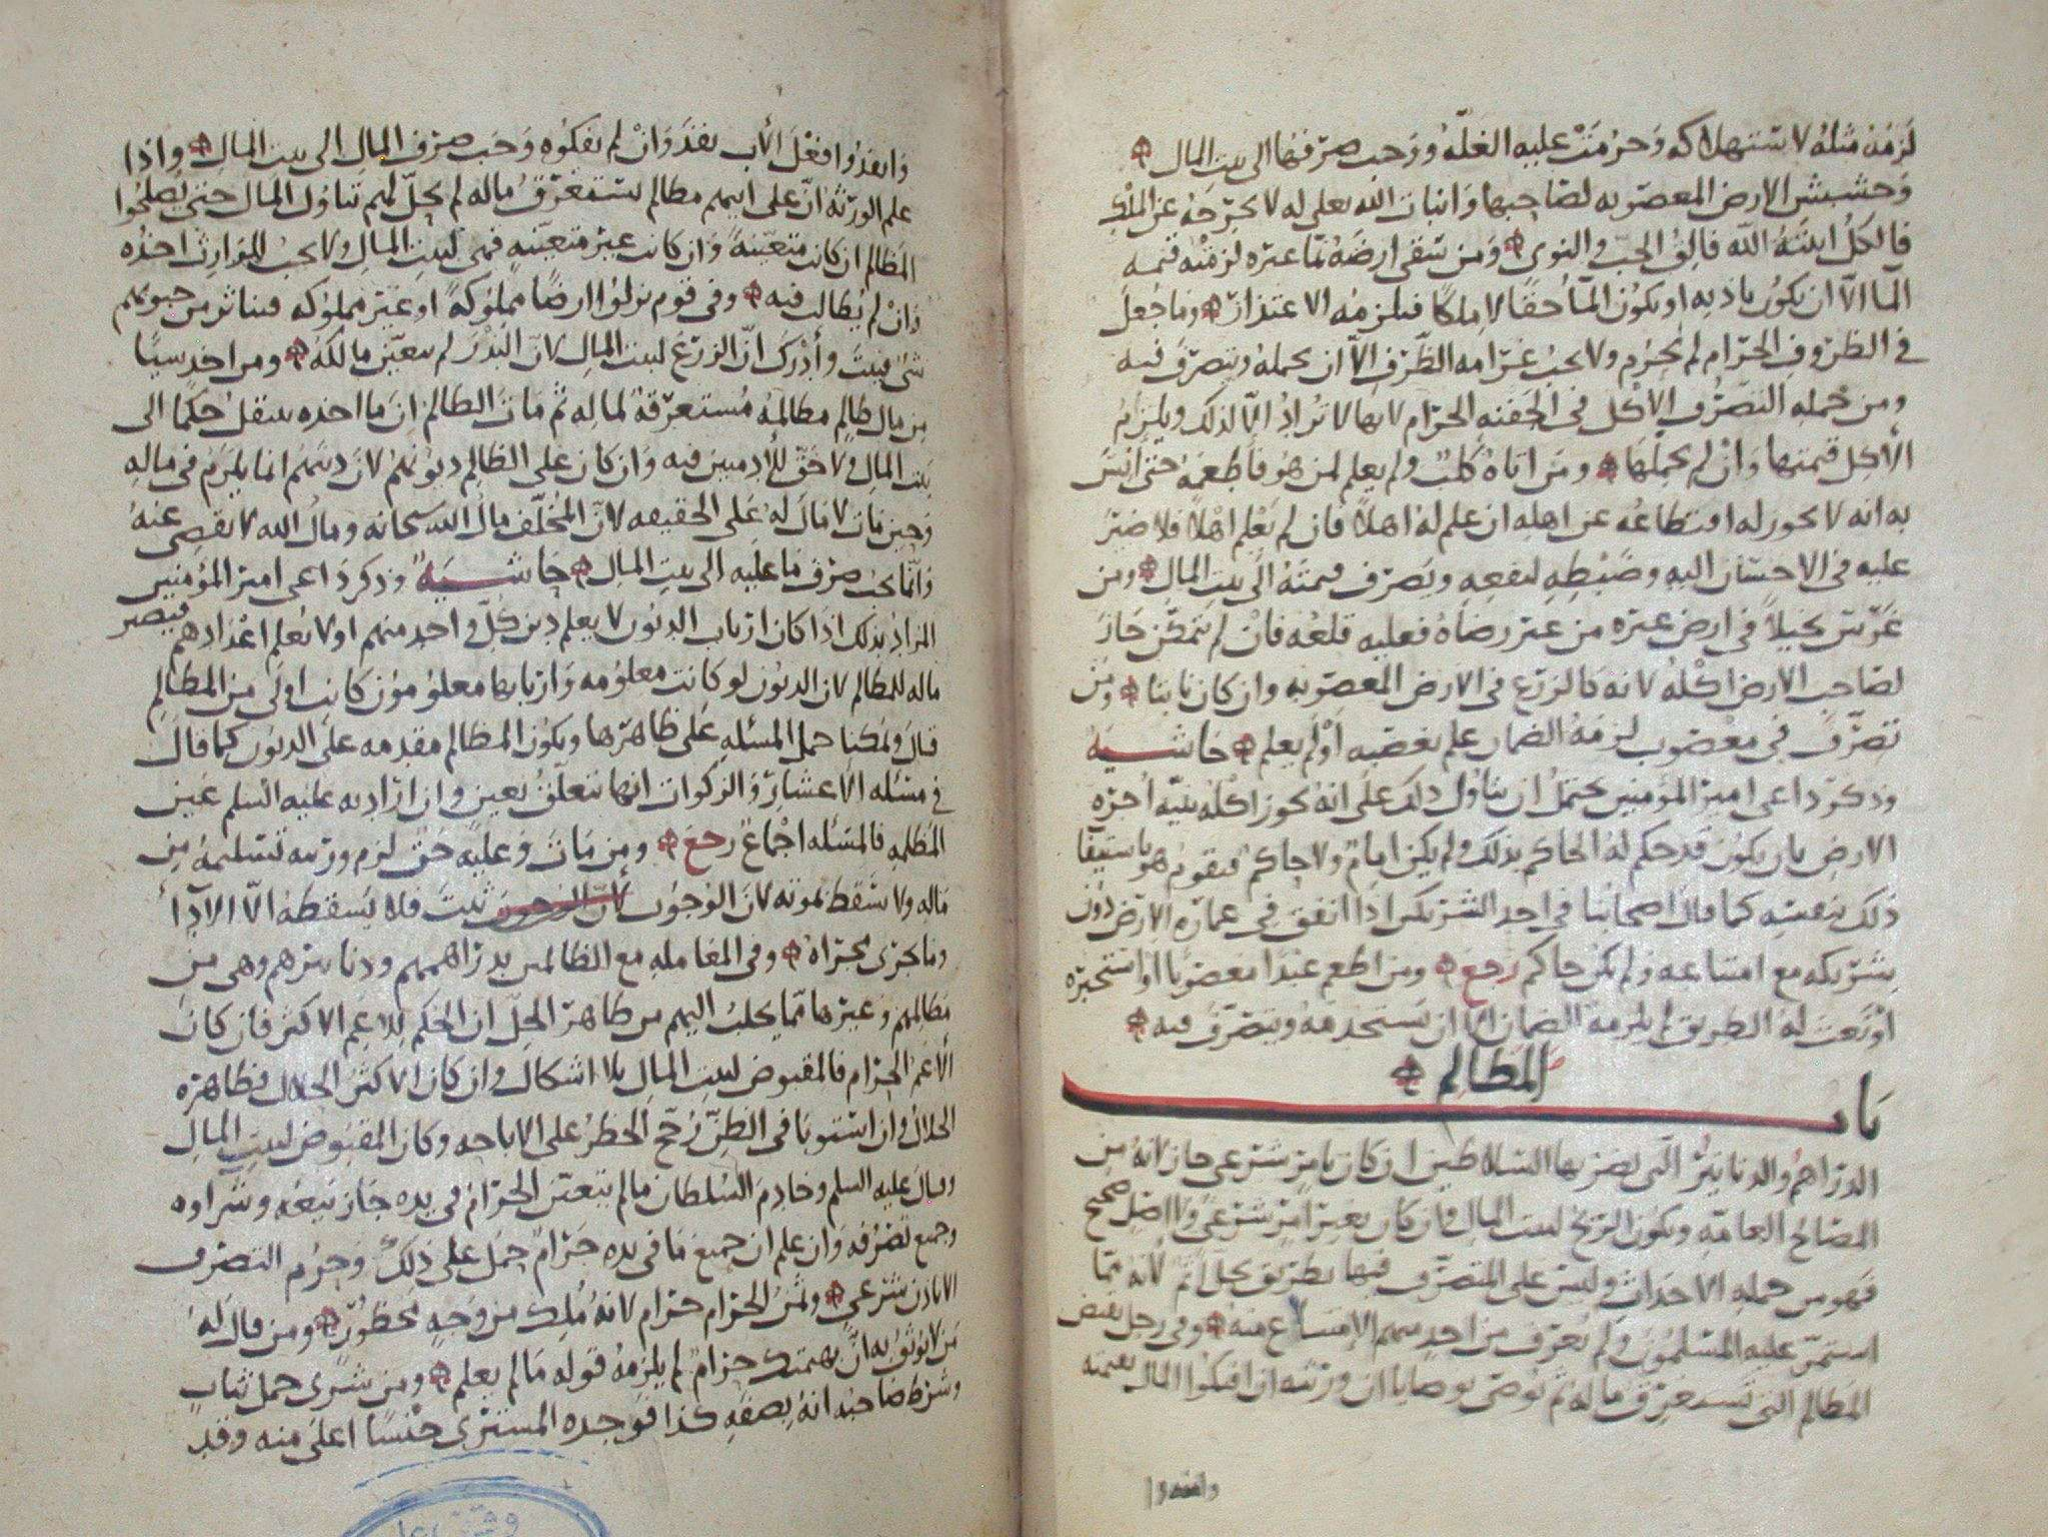 لزمه مثله لاستهلاكه وحرمت عليه الغلة ووجب صرفها الى بيت المال
وحشيش الارض المغصوبه لصاحبها وانبات الله تعلى له لا يخرجه عن الملك
فالكل ابنته الله فالق الحب والنوى ومن سقى ارضه بما غيره لزمته قيمه
الما الا ان يكون باذنه او يكون الما حقا لا ملكا فيلزمه الاعتذار وما جعل
في الظروف الحرام لم يحرم ولا يجب غرامه الظرف الا ان يحمله ويتصرف فيه
ومن جمله التصرف الاكل في الجفنه الحرام لانها لا تراد الا لذلك ويلزم
الاكل قيمتها وان لم يحملها ومن اتاه كلب ولم يعلم لمن هو فاطعمه حتى انس
به انه لا يجوز له اقتطاعه عن اهله ان علم له اهلا فان لم يعلم اهلا فلا ضير
عليه في الاحسان اليه وضبطه لنفعه ويصرف قيمته الى بيت المال ومن
غرس نخيلا في ارض غيره من غير رضاه فعليه قلعه فان لم يتمكن جاز
لصاحب الارض اكله لانه كالزرع في الارض المغصوبه وان كان نابتا ومن
تصرف في مغصوب لزمه الضمان علم بغصبه او لم يعلم حاشيه
وذكر داعي امير المؤمنين يحتمل ان يتاول ذلك على انه يجوز اكله بنيه اجره
الارض بان يكون قد حكم له الحاكم بذلك ولم يكن امام ولا حاكم فيقوم هو باستيفا
ذلك بنفسه كما قال اصحابنا في احد الشريكين اذا انفق في عماره الارض دون
شريكه مع امتناعه ولم يكن حاكم رجع ومن اطعم عبدا مغصوبا او استخبره
او نعت له الطريق لم يلزمه الضمان الا ان يستخدمه ويتصرف فيه
باب المظالم
الدراهم والدنانير التي يضربها السلاطين ان كان بامر شرعي جاز لانه من
المصالح العامه ويكون الربح لبيت المال وان كان بغير امر شرعي ولا اصل صحيح
فهو من جمله الاحداث وليس على المتصرف فيها بطريق يحل اثم لانه مما
استمر عليه المسلمون ولم يعرف من احد منهم الامتناع منه وفي رجل يقبض
المظالم التي تستغرق ماله ثم يوصي بوصايا ان ورثته ان افتكوا المال بقيمته
وانفذوا
وانفذوا فعل الأب نفذ وان لم يفكوه وجب صرف المال الى بيت المال واذا
علم الورثه ان على ابيهم مظالم تستغرق ماله لم يحل لهم تناول المال حتى يصلحوا
المظالم ان كانت متعينة وان كانت غير متعينه فهي لبيت المال ولا يجب للوارث اخذه
وان لم يطالب فيه وفي قوم نزلوا ارضا مملوكة او غير مملوكه فتناثر من حبوبهم
شي فنبت وأدرك ان الزرع لبيت المال لان البذر لم يتعين مالكه ومن اخذ شيا
من مال ظالم مظالمه مستغرقة لماله ثم مات الظالم ان ما اخذه ينتقل حكما الى
بيت المال ولا حق للأدميين فيه وان كان على الظالم ديونهم لان دينهم انما يلزم في ماله
وحين مات لا مال له على الحقيقه لان المخلف مال الله سبحانه ومال الله لا يقضى عنه
وانما يجب صرف ما عليه الى بيت المال حاشيه وذكر داعي امير المؤمنين
المراد بذلك اذا كان ارباب الديون لا يعلم دين كل واحد منهم او لا تعلم اعدادهم فيصير
ماله للمظالم لان الديون لو كانت معلومه واربابها معلومون كانت اولى من المظالم
قال ويمكننا حمل المسئله على ظاهرها ويكون المظالم مقدمه على الديون كما قال
في مسئله الاعشار والزكوات انها تتعلق بعين وان اراد به عليه السلم عين
المظلمه فالمسئله اجماع رجع ومن مات وعليه حق لزم ورثته تسليمه من
ماله ولا تسقط بموته لان الوجوب لان الوجوب ثبت فلا يسقطه الا الادآ
وما جرى مجراه وفي المعامله مع الظالمين بدراهمهم ودنانيرهم وهي من
مظالمهم وغيرها مما يجلب اليهم من ظاهر الحل ان الحكم للاعم الاكثر فان كان
الاعم الحرام فالمقبوض لبيت المال بلا اشكال وان كان الاكثر الحلال فظاهره
الحلال وان استويا في الظن رجح الحظر على الاباحه وكان المقبوض لبيت المال
وقال عليه السلم وخادم السلطان ما لم يتعين الحرام في يده جاز بيعه وشراوه
وجميع تصرفه وان علم ان جميع ما في يده حرام حمل على ذلك وحرم التصرف
الا باذن شرعي وثمن الحرام حرام لانه ملك من وجه محظور ومن قال له
من لا يوثق به ان بهمتك حرام لم يلزمه قوله ما لم يعلم ومن شرى حمل ثياب
وشرط صاحبه انه بصفه كذا فوجده المشتري جنسا اعلى منه وقد